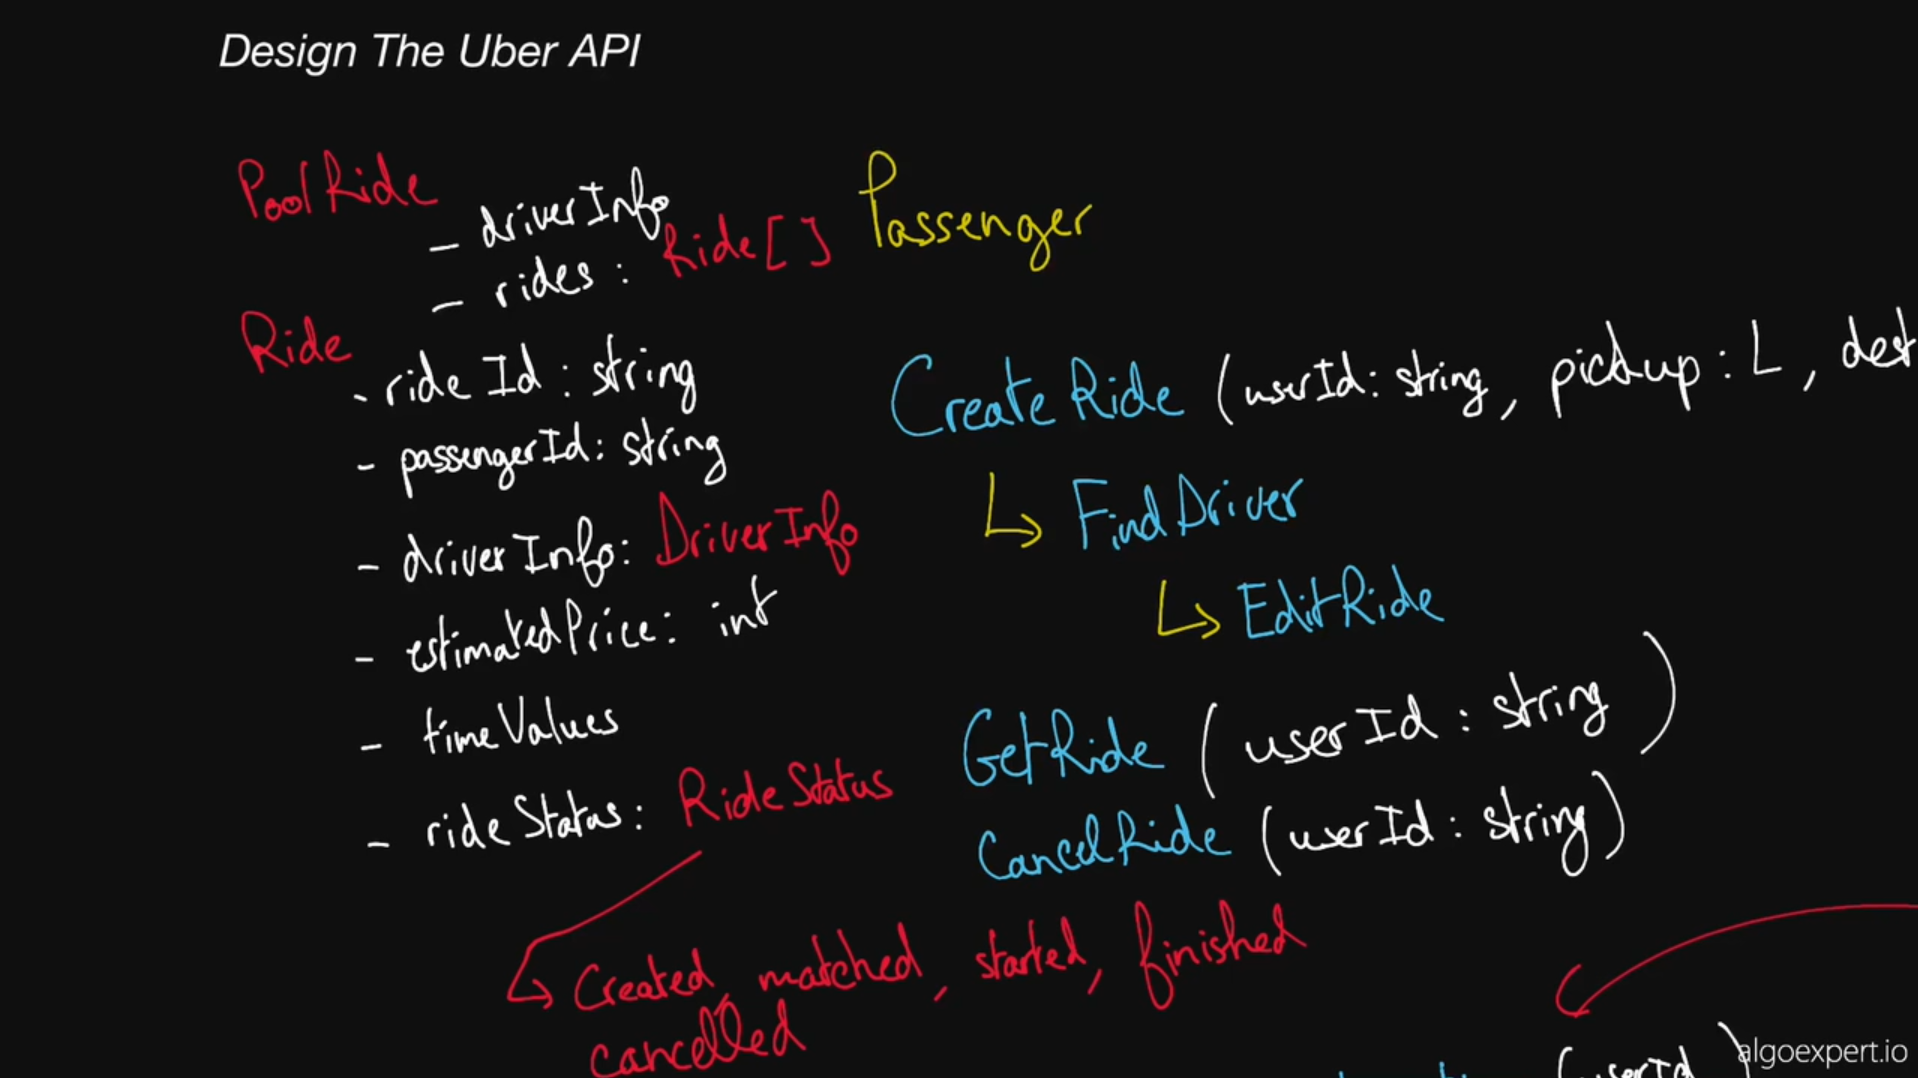 Design The Uber API
PoolRide
- driverInfo
- rides : Ride[]
Ride
- rideId : string
- passengerId : string
- driverInfo : DriverInfo
- estimatedPrice : int
- timeValues
- rideStatus : RideStatus
Created, matched, started, finished
cancelled
Passenger
CreateRide (userId: string, pickup : L, dest
FindDriver
EditRide
GetRide (userId : string)
CancelRide (userId : string)
(userId)
algoexpert.io